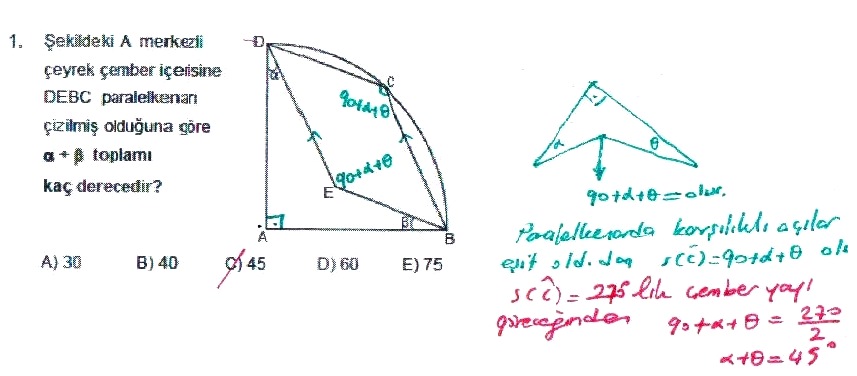 1. Şekildeki A merkezli
çeyrek çember içerisine
DEBC paralelkenarı
çizilmiş olduğuna göre
α + β toplamı
kaç derecedir?
A) 30 B) 40 C) 45 D) 60 E) 75
D
α
C
90+α+θ
90+α+θ
E
β
A
B
α
θ
90+α+θ = olur.
Paralelkenarda karşılıklı açılar
eşit old. dan s(ĉ)=90+α+θ olu
s(ĉ) = 275 lik çember yayı
göreceğinden 90+α+θ = 270/2
α+θ=45°